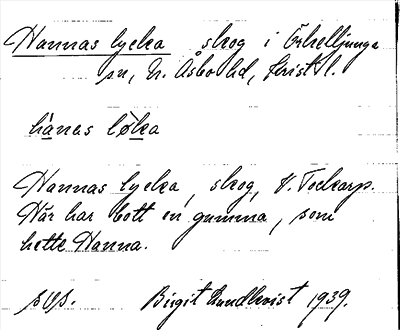 Hannas lycka skog i Örkelljunga
sn, N. Åsbo hd, Krist l.
hànas lø̀ka
Hannas lycka, skog, V. Tockarp.
Här har bott en gumma, som
hette Hanna.
Birgit Lundkvist 1939.